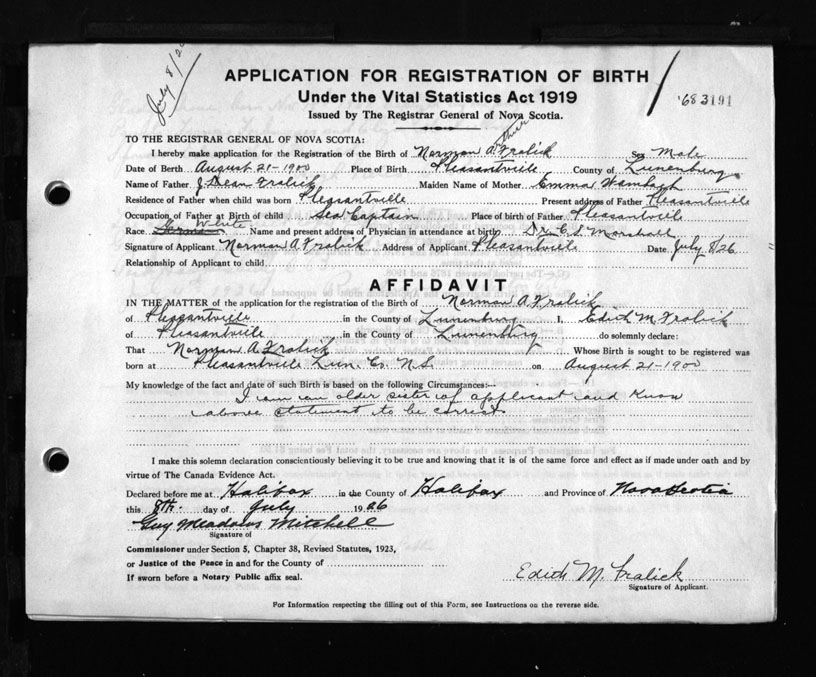 July 8/26
APPLICATION FOR REGISTRATION OF BIRTH
Under the Vital Statistics Act 1919
683191
Issued by The Registrar General of Nova Scotia.
TO THE REGISTRAR GENERAL OF NOVA SCOTIA:
I hereby make application for the Registration of the Birth of Norman A. Fralick Sex Male
Date of Birth August 21-1900 Place of Birth Pleasantville County of Lunenburg
Name of Father J. Dean Fralick Maiden Name of Mother Emma Wambach
Residence of Father when child was born Pleasantville Present address of Father Pleasantville
Occupation of Father at Birth of child Sea Captain Place of birth of Father Pleasantville
Race German White Name and present address of Physician in attendance at birth Dr. C. S. Marshall
Signature of Applicant Norman A. Fralick Address of Applicant Pleasantville Date July 8/26
Relationship of Applicant to child
AFFIDAVIT
IN THE MATTER of the application for the registration of the Birth of Norman A Fralick
of Pleasantville in the County of Lunenburg I, Edith M. Fralick
of Pleasantville in the County of Lunenburg do solemnly declare:
That Norman A. Fralick Whose Birth is sought to be registered was
born at Pleasantville Lun. Co. N.S. on August 21-1900
My knowledge of the fact and date of such Birth is based on the following Circumstances:—
I am an older sister of applicant and know
above statement to be correct
I make this solemn declaration conscientiously believing it to be true and knowing that it is of the same force and effect as if made under oath and by
virtue of The Canada Evidence Act.
Declared before me at Halifax in the County of Halifax and Province of Nova Scotia
this 8th day of July 1926
Guy Meadows Mitchell
Signature of
Commissioner under Section 5, Chapter 38, Revised Statutes, 1923,
or Justice of the Peace in and for the County of
If sworn before a Notary Public affix seal.
Edith M. Fralick
Signature of Applicant.
For Information respecting the filling out of this Form, see Instructions on the reverse side.